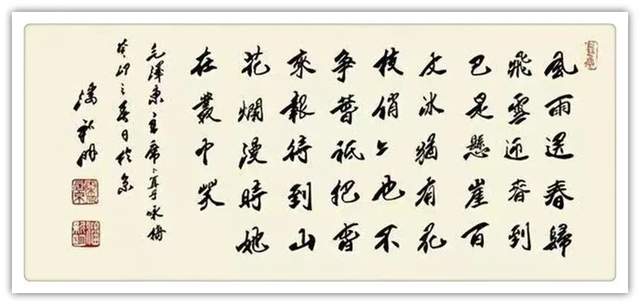 風雨送春歸
飛雪迎春到
已是懸崖百
丈冰猶有花
枝俏々也不
争春祇把春
來報待到山
花爛漫時她
在叢中笑
毛澤東主席卜算子咏梅
癸卯之春日於京